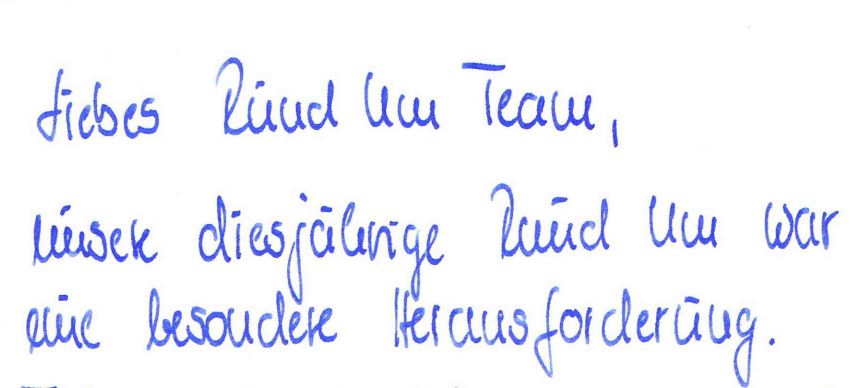 Liebes Rund Um Team,
unsere diesjährige Rund Um war
eine besondere Herausforderung.